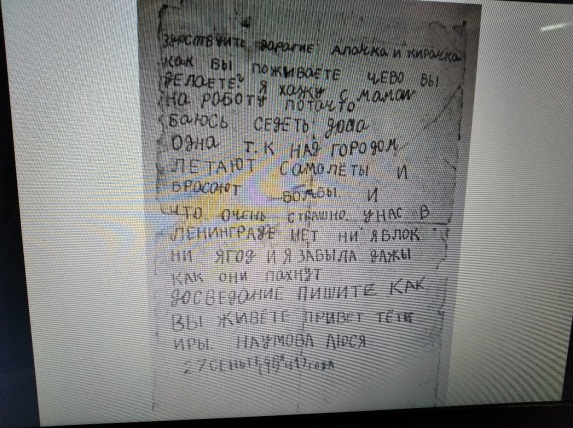 ЗДРАСТВУЙТЕ ДАРАГИЕ АЛАЧКА И КИРАЧКА
КАК ВЫ ПОЖИВАЕТЕ ЧЕВО ВЫ
ДЕЛАЕТЕ? Я ХАЖУ С МАМАЙ
НА РОБОТУ ПОТАЧТО
БАЮСЬ СЕДЕТЬ ДОМА
ОДНА Т.К НАД ГОРОДОМ
ЛЕТАЮТ САМОЛЁТЫ И
БРОСАЮТ БОМБЫ. И
ЧТО ОЧЕНЬ СТРАШНО. УНАС В
ЛЕНИНГРАДЕ НЕТ НИ ЯБЛОК
НИ ЯГОД И Я ЗАБЫЛА ДАЖЫ
КАК ОНИ ПАХНУТ
ДОСВЕДАНИЕ ПИШИТЕ КАК
ВЫ ЖИВЁТЕ ПРИВЕТ ТЁТЕ
ИРЫ. НАУМОВА ЛЮСЯ
27 ГОДА